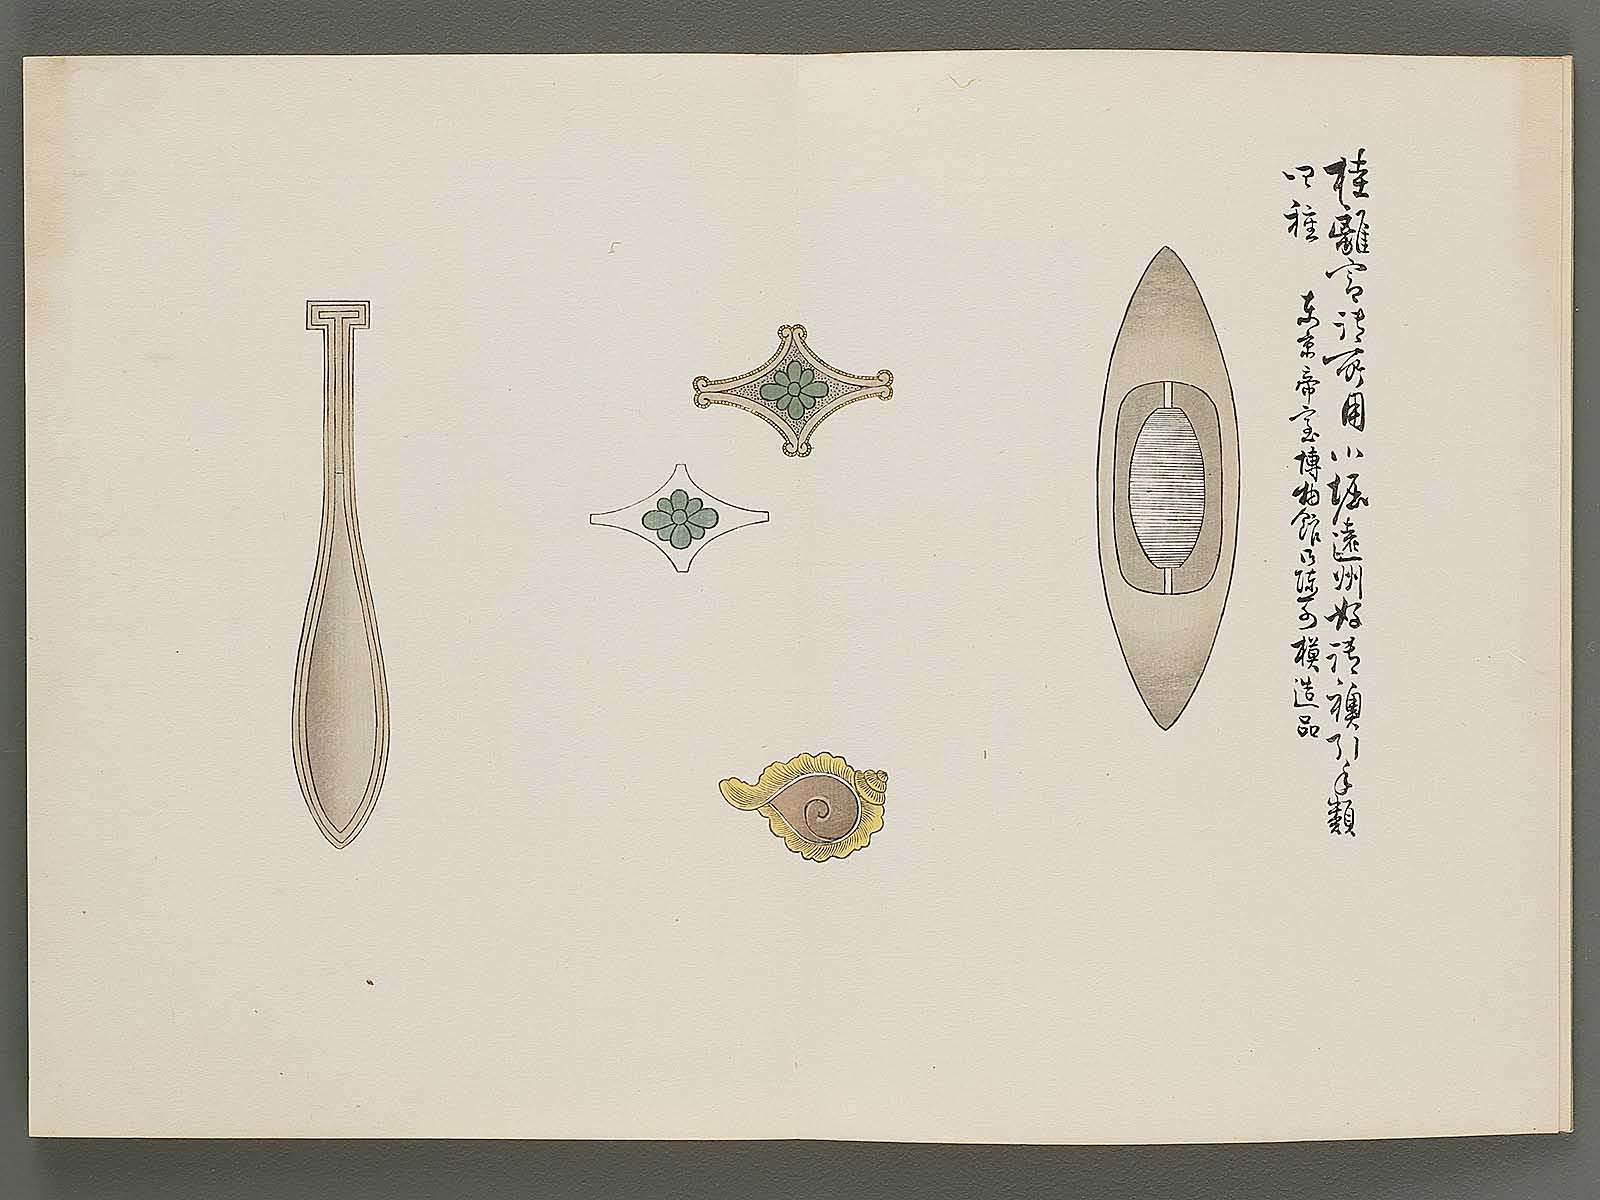 桂離宮御所用小堀遠州好御襖引手類
四種　東京帝室博物館乃陳列模造品